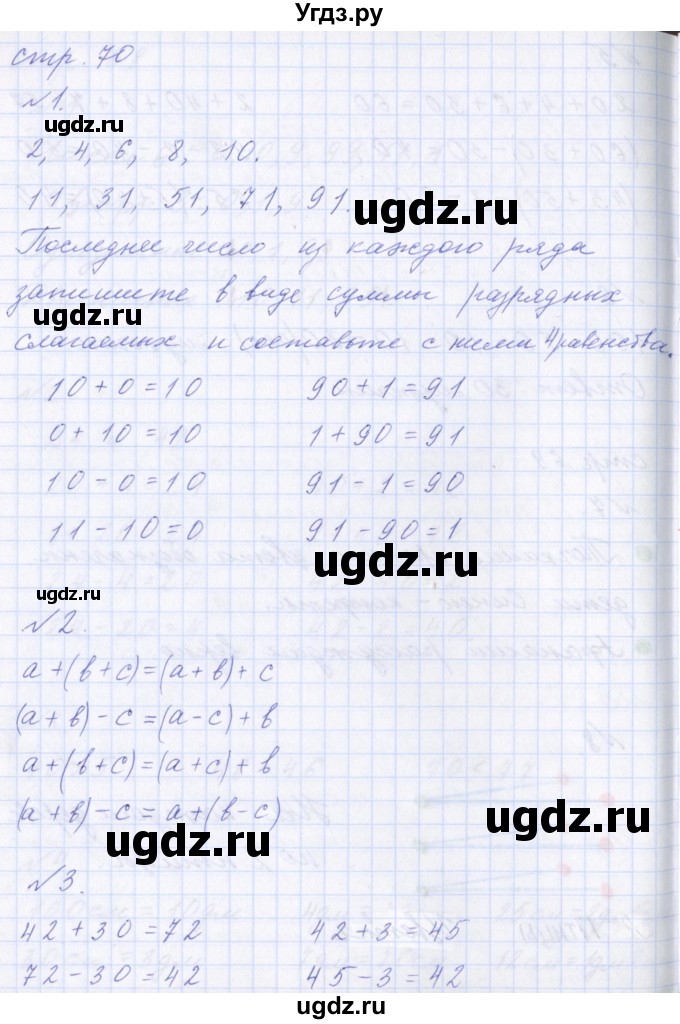 Угдз.ру
стр. 70
№1.
ugdz.ru
2, 4, 6, 8, 10.
11, 31, 51, 71, 91.
ugdz.ru
Последнее число из каждого ряда
запишите в виде суммы разрядных
ugdz.ru
слагаемых и составьте с ними 4 равенства.
10+0=10 90+1=91
0+10=10 1+90=91
10-0=10 91-1=90
11-10=0 91-90=1
ugdz.ru
№2.
ugdz.ru
a+(b+c)=(a+b)+c
(a+b)-c=(a-c)+b
a+(b+c)=(a+c)+b
(a+b)-c=a+(b-c)
ugdz.ru
ugdz.ru
№3.
42+30=72 42+3=45
72-30=42 45-3=42
ugdz.ru